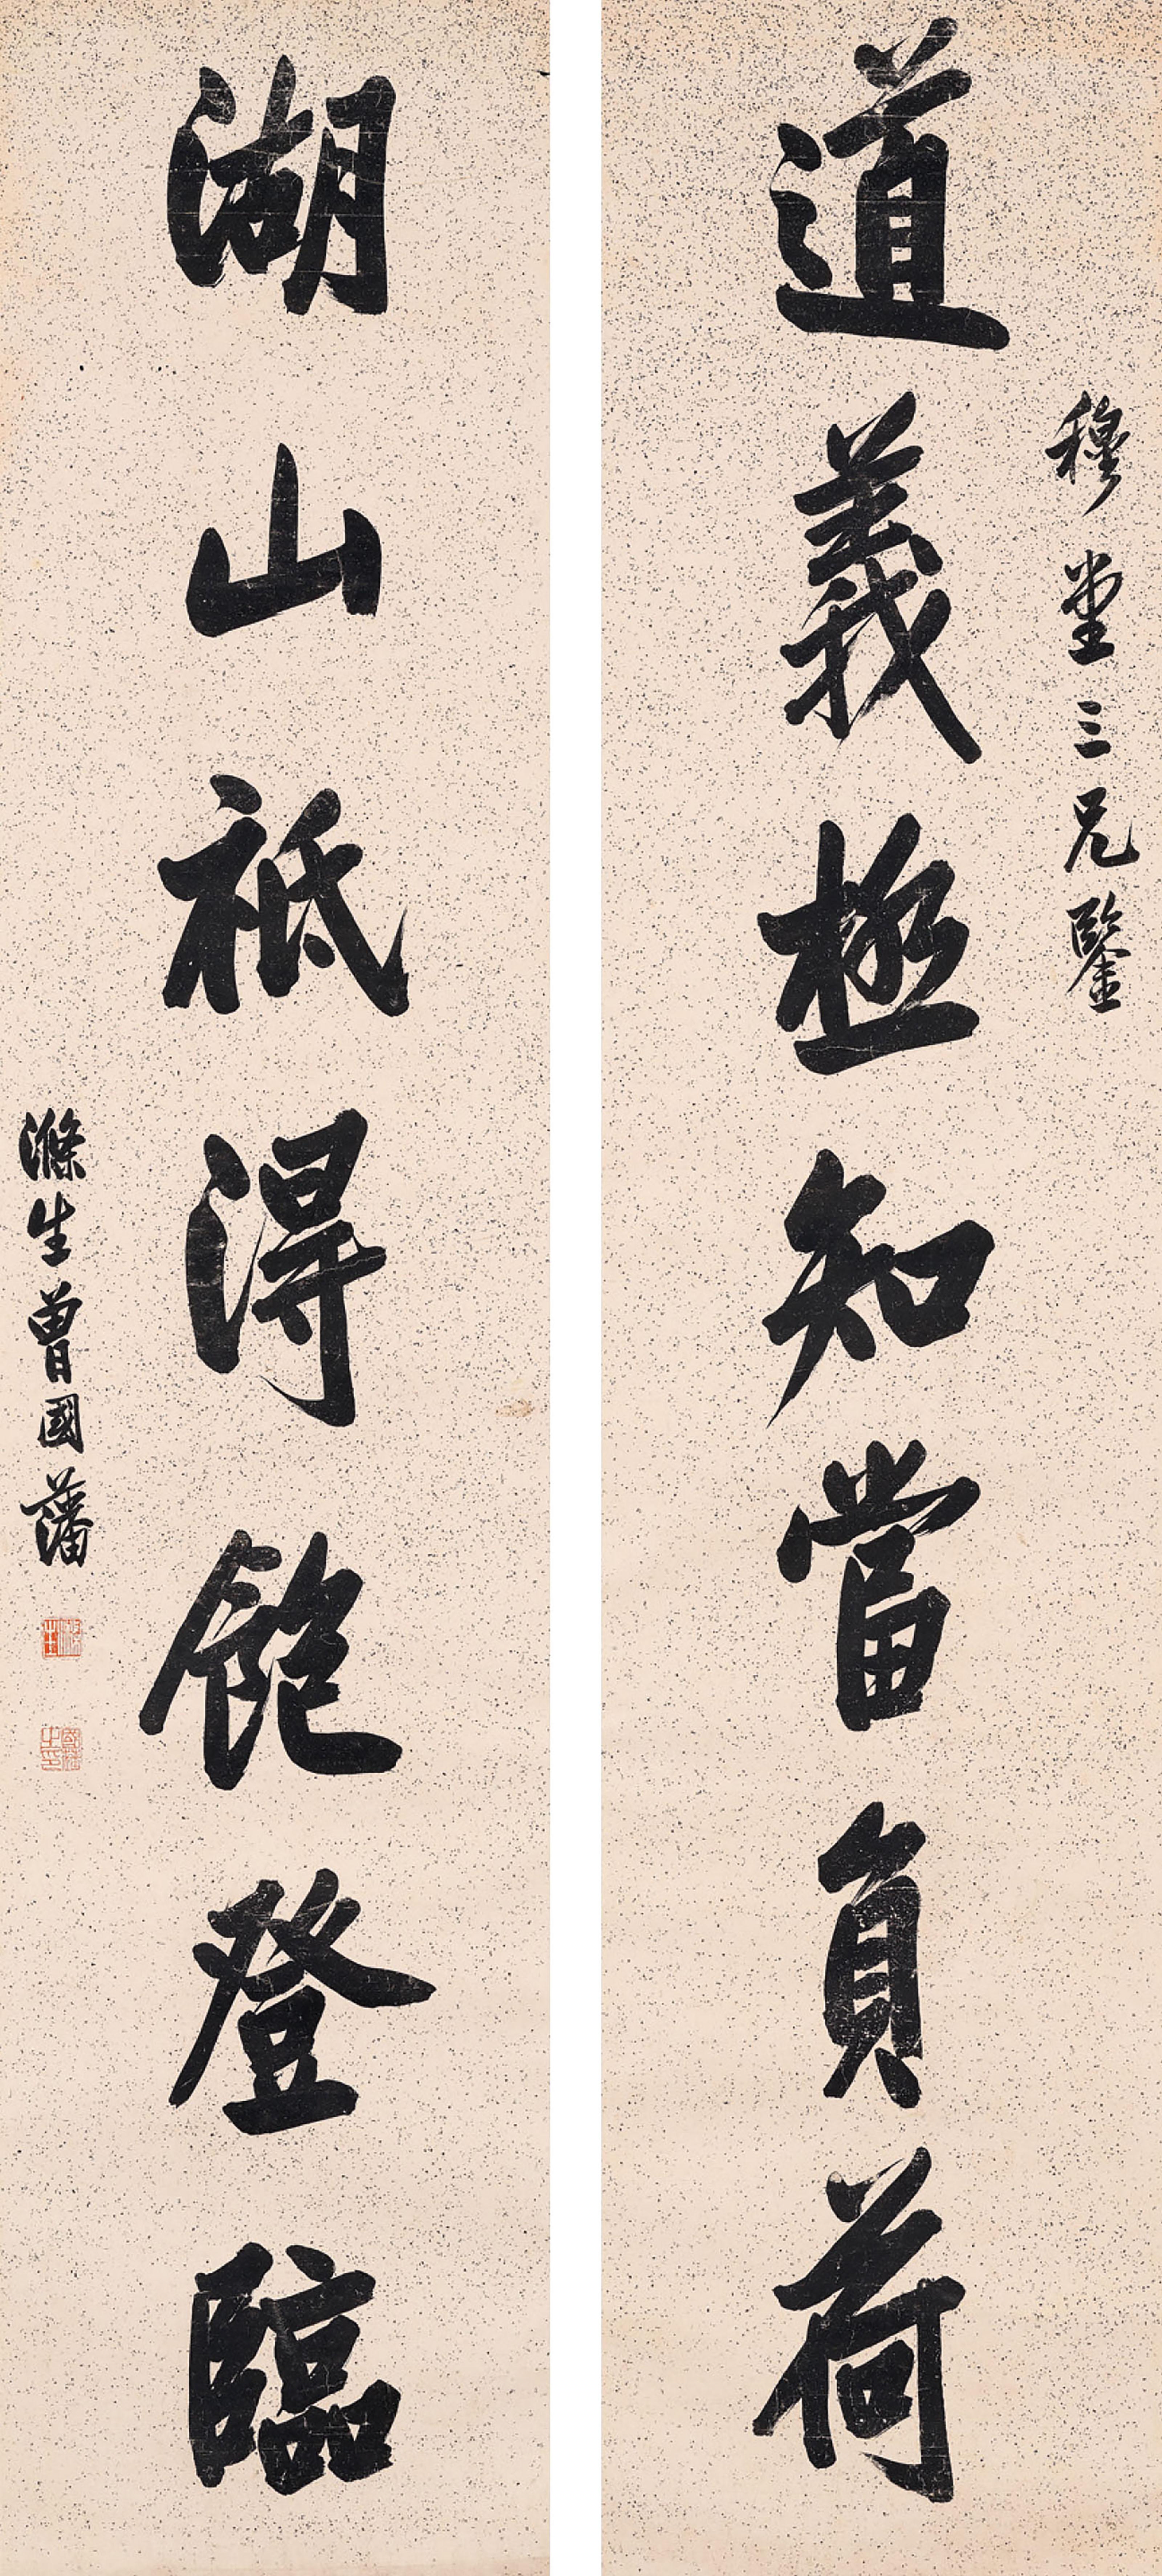 穆堂三兄鑒
道義極知當負荷
湖山祇得飽登臨
滌生曾國藩